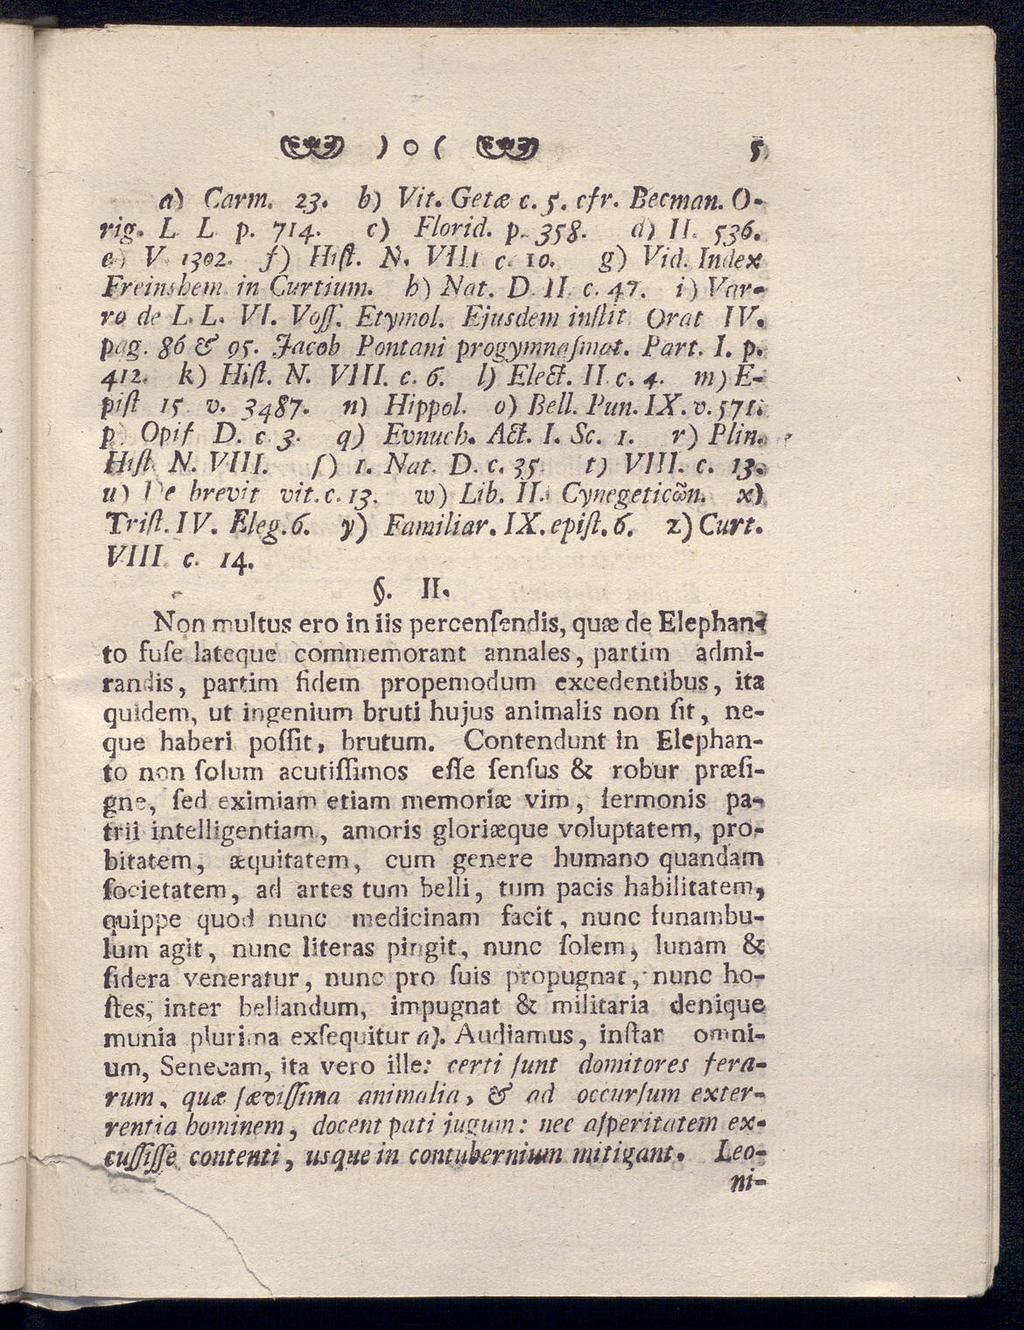 ) o ( 5
a) Carm. 23. b) Vit. Getæ c. 5. cfr. Becman. O-
rig. L. L. p. 714. c) Florid. p. 358. d) II. 536.
e) V. 1302. f) Hiſt. N. VIII c. 10. g) Vid. Index
Freinshem. in Curtium. h) Nat. D. II. c. 47. i) Var-
ro de L. L. VI. Voſſ. Etymol. Ejusdem inſtit. Orat IV.
pag. 86 & 95. Jacob Pontani progymnaſmat. Part. I. p.
412. k) Hiſt. N. VIII. c. 6. l) Elect. II. c. 4. m) E-
piſt 15 v. 3487. n) Hippol. o) Bell. Pun. IX. v. 571.
p) Opif D. c. 3. q) Evnuch. Act. I. Sc. 1. r) Plin.
Hiſt. N. VIII. ſ) 1. Nat. D. c. 35. t) VIII. c. 13.
u) De brevit vit. c. 13. w) Lib. II. Cynegeticῶn. x)
Triſt. IV. Eleg. 6. y) Familiar. IX. epiſt. 6. z) Curt.
VIII. c. 14.
§. II.
Non multus ero in iis percenſendis, quæ de Elephan-
to fuſe lateque commemorant annales, partim admi-
randis, partim fidem propemodum excedentibus, ita
quidem, ut ingenium bruti hujus animalis non ſit, ne-
que haberi poſſit, brutum. Contendunt in Elephan-
to non ſolum acutiſſimos eſſe ſenſus & robur præſi-
gne, ſed eximiam etiam memoriæ vim, ſermonis pa-
trii intelligentiam, amoris gloriæque voluptatem, pro-
bitatem, æquitatem, cum genere humano quandam
ſocietatem, ad artes tum belli, tum pacis habilitatem,
quippe quod nunc medicinam facit, nunc funambu-
lum agit, nunc literas pingit, nunc ſolem, lunam &
ſidera veneratur, nunc pro ſuis propugnat, nunc ho-
ſtes, inter bellandum, impugnat & militaria denique
munia plurima exſequitur a). Audiamus, inſtar omni-
um, Senecam, ita vero ille: certi ſunt domitores fera-
rum, quæ ſæviſſima animalia, & ad occurſum exter-
rentia hominem, docent pati jugum: nec aſperitatem ex-
cuſſiſſe contenti, usque in contubernium mitigant. Leo-
ni-